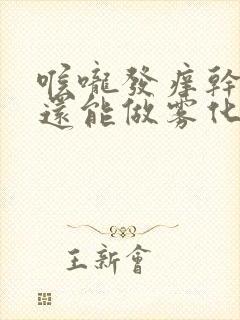 喉嚨發癢幹
還能做雾化
王新會